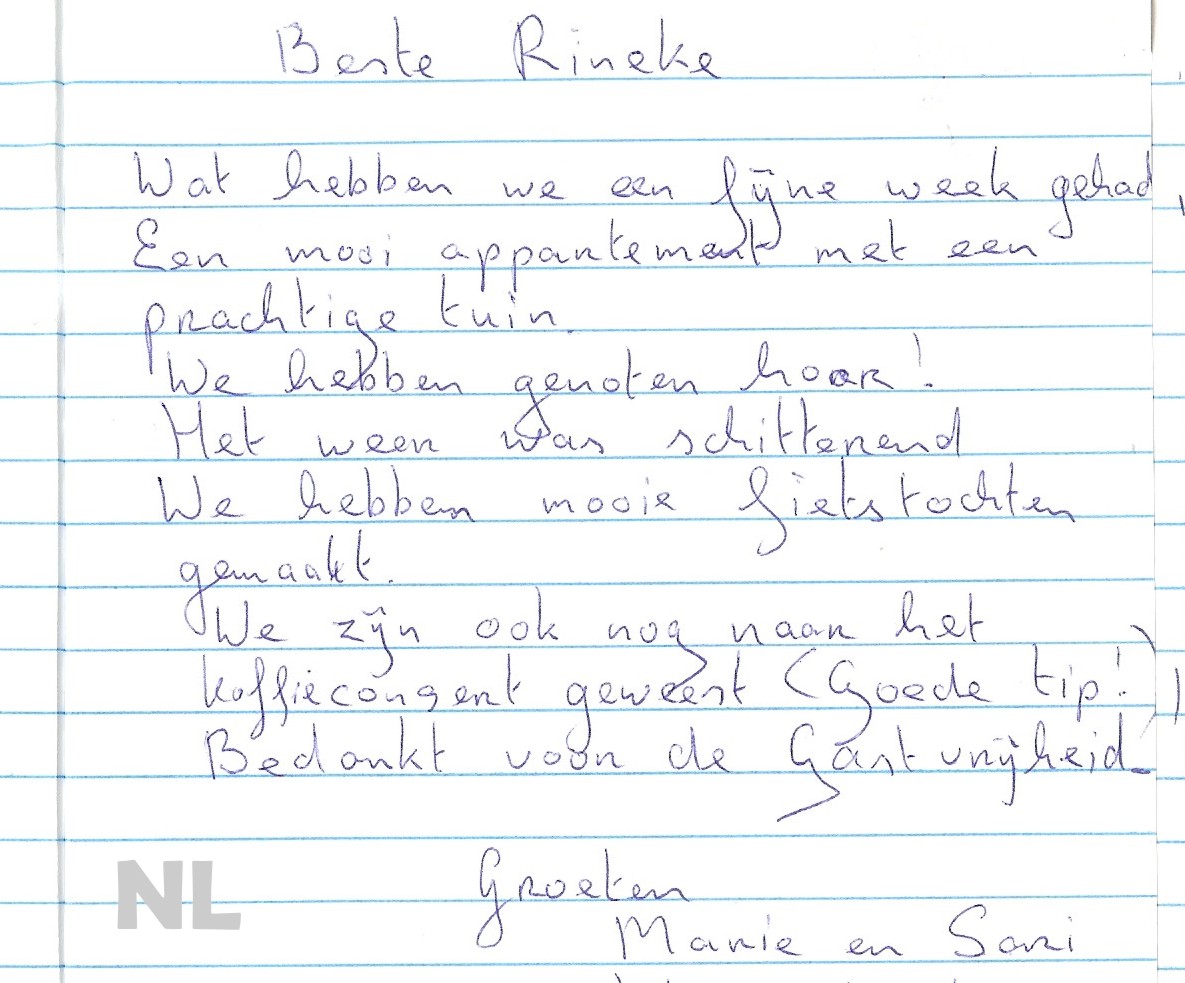 Beste Rineke
Wat hebben we een fijne week gehad
Een mooi appartement met een
prachtige tuin.
We hebben genoten hoor!
Het weer was schitterend
We hebben mooie fietstochten
gemaakt.
We zijn ook nog naar het
koffieconsert geweest (Goede tip!)
Bedankt voor de Gastvrijheid
Groeten
Marie en Sari
NL